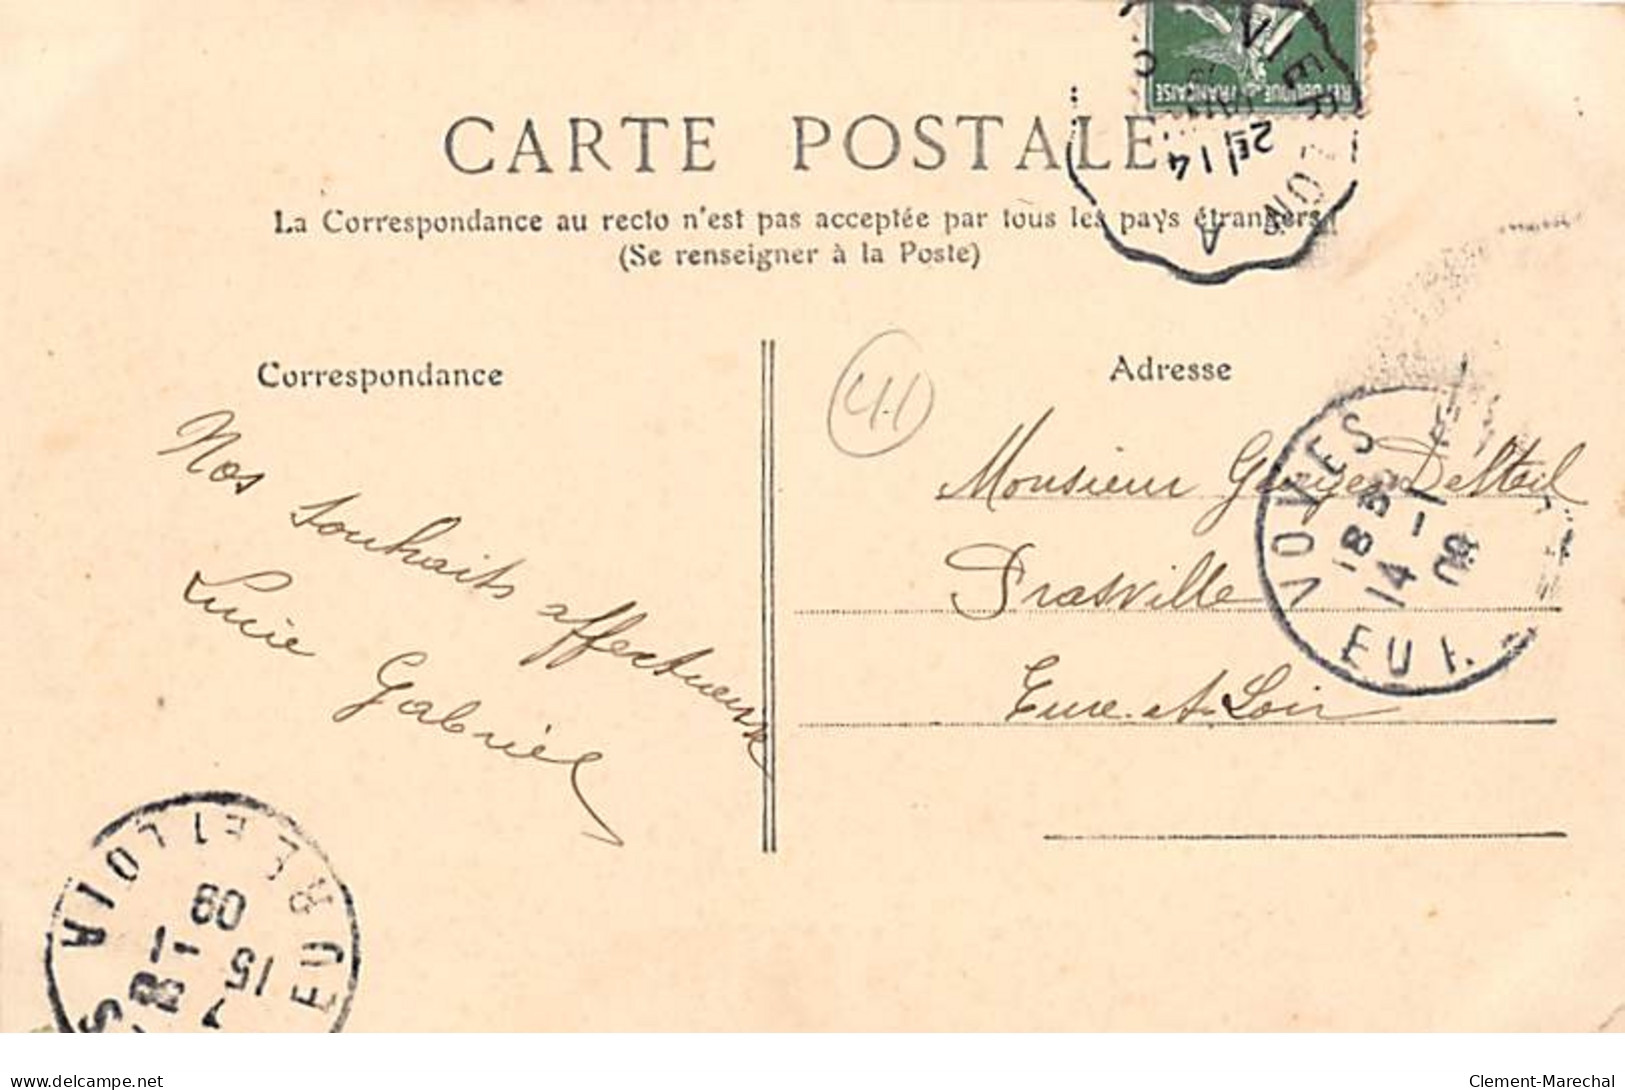 RÉPUBLIQUE FRANÇAISE
VIERZON A
2E
14
CARTE POSTALE
La Correspondance au recto n'est pas acceptée par tous les pays étrangers
(Se renseigner à la Poste)
Correspondance
Adresse
41
Nos souhaits affectueux
Lucie Gabriel
Monsieur Georges Delteil
Prasville
Eure-et-Loir
VOVES
18 35
14 -1
08
EURE ET LOIR
08
15 -1
delcampe.net
Clement-Marechal